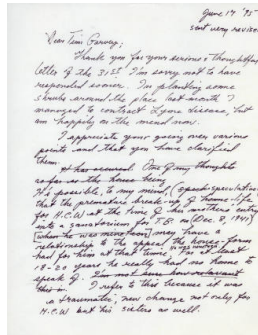 June 17 '95
sent very revised
Dear Tim Garvey;
Thank you for your serious & thoughtful
letter of the 31st I'm sorry not to have
responded sooner. In planting some
shrubs around the place last month I
managed to contract Lyme disease, but
am happily on the mend now.
I appreciate your going over various
points and that you have clarified
them.
It has occurred. One of my thoughts
so far as the home being
It's possible, to my mind, (speak speculation)
that the premature break-up of home-life
for H.C.W at the time of his mother's entry
into a sanatorium for TB. on (Dec. 8, 1941)
(when he was nine) may have a
relationship to the appeal the house-form
had for him at that time, For at
18-20 years old he really had no home to
speak of. I'm not sure how relevant
this is. I refer to this because it was
a traumatic, new change not only for
H.C.W but his sisters as well.